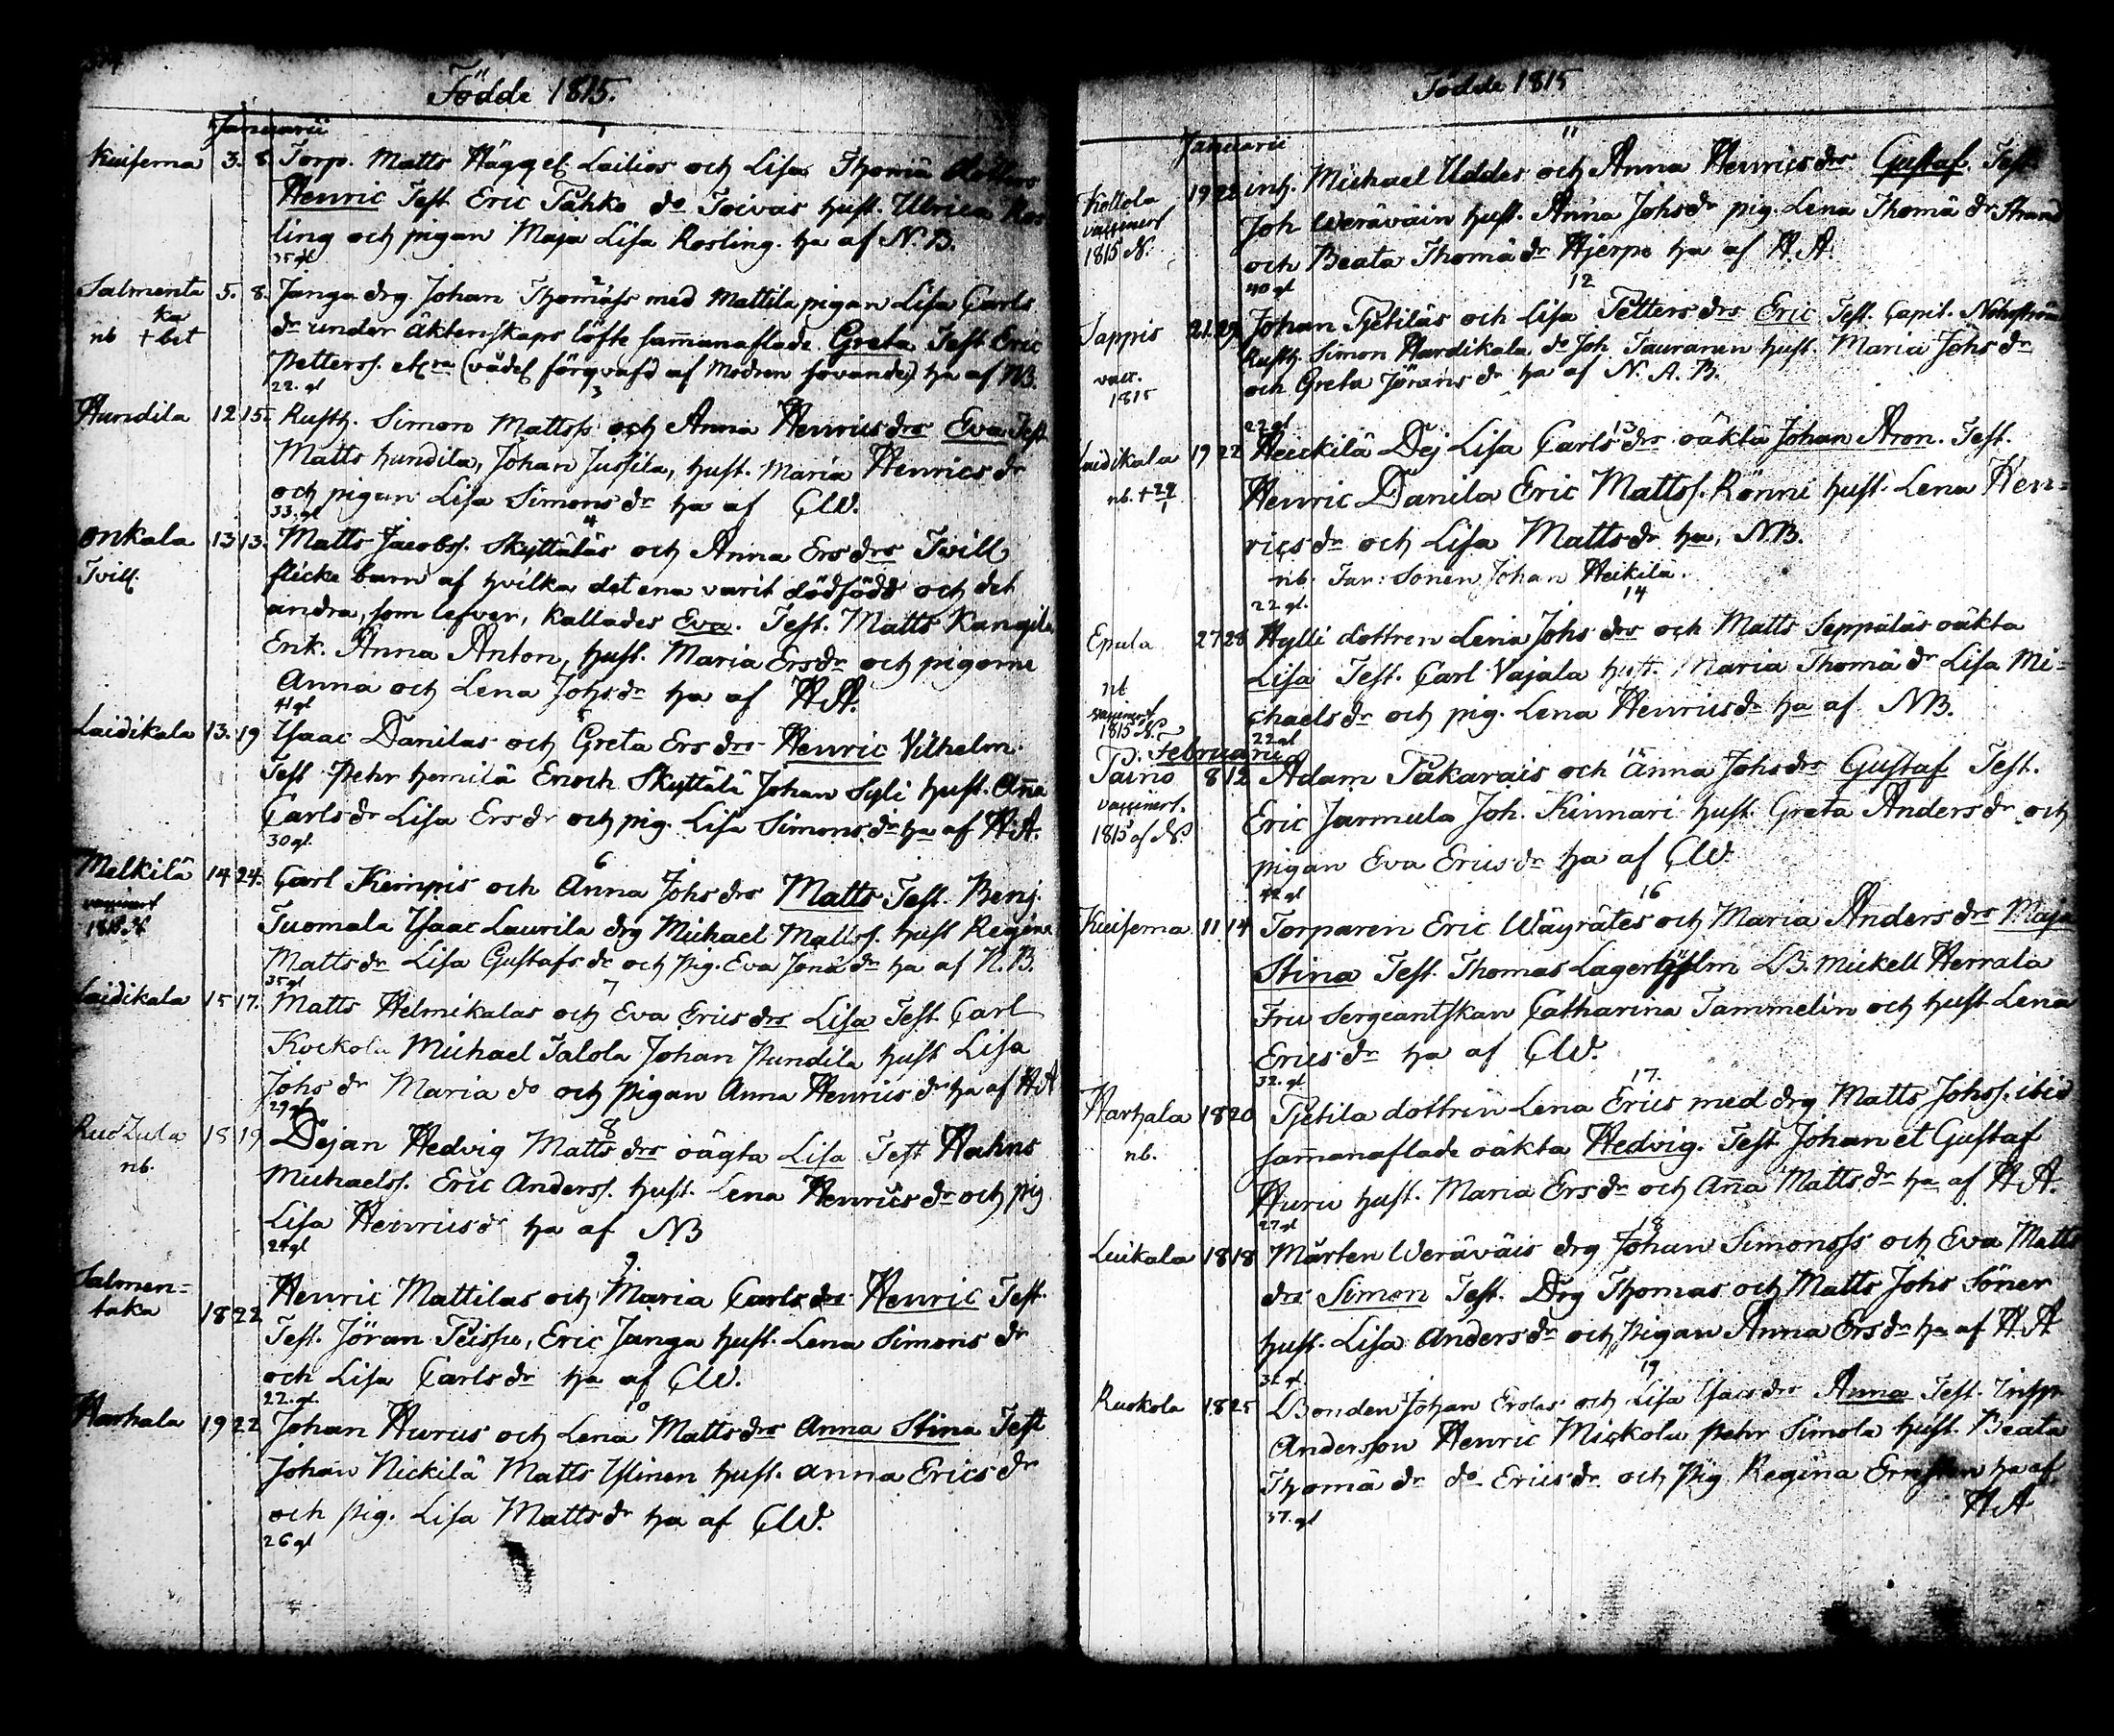 Födde 1815.
Januarii
1
Kuiserna 3. 8. Torp. Matts Hägg el. Lailios och Lisa Thomæ dotters
Henric Test Eric Pahko do Toivas hust. Ulrica Ros
ling och pigan Maja Lisa Rosling. ha af N.B.
35 gl
2
Salmenta 5. 8. Janga drg. Johan Thomæss med Mattila pigan Lisa Carls
ka
nb + bet
dr under äktenskaps löfte sam̄anaflade Greta Test Eric
Petterss. etc (vådel förqvafd af Modren sovande) ha af NB.
22. gl
3
Hundila 12 15. Rusth. Simon Mattss och Anna Henricsdrs Eva Test
Matts Hundila, Johan Jussila, hust. Maria Henricsdr
och pigan Lisa Simonsdr ha af CW.
33. gl
4
Onkala 13 13. Matts Jacobss. Skyttäläs och Anna Ersdrs Tvill
Tvill.
flicke barn af hvilka det ena varit dödfödd och det
andra, som lefver, kallades Eva. Test. Matts Kangila
Enk. Anna Anton, hust. Maria Ersdr och pigorne
Anna och Lena Johsdr ha af HA.
41 gl
5
Laidikala 13. 19 Isaac Danilas och Greta Ersdrs Henric Vilhelm
Test Pehr Hernilä Enoch Skyttälä Johan Syli hust. Ana
Carlsdr Lisa Ersdr och pig. Lisa Simonsdr ha af HA.
30 gl
6
Melkilä 14 24. Carl Kempis och Anna Johsdrs Matts Test. Benj.
Tuomala Isaac Laurila drg Michael Mattss. hust Regina
Mattsdr Lisa Gustafsdr och Pig. Eva Jonædr ha af N.B.
35 gl
7
Laidikala 15 17. Matts Helmikalas och Eva Ericsdrs Lisa Test Carl
Kockola Michael Talola Johan Hundila hust Lisa
Johsdr Maria do och Pigan Anna Henricsdr ha af HA
29 gl
8
18 19 Dejan Hedvig Mattsdrs oägta Lisa Test Hahns
nb.
Michaelss. Eric Anderss. hust. Lena Henricsdr och pig
Lisa Henricsdr ha af NB
24 gl
9.
Salmen=
taka 18 22 Henric Mattilas och Maria Carlsdrs Henric Test.
Test. Jöran Peispu, Eric Janga hust. Lena Simonsdr
och Lisa Carlsdr ha af CW.
22. gl.
10
Harhala 19 22 Johan Hurus och Lena Mattsdrs Anna Stina Test
Johan Nickilä Matts Islinen hust. Anna Ericsdr
och Pig. Lisa Mattsdr ha af CW.
26 gl
Födde 1815
Januarii
11
19 22 inh. Michael Uddes och Anna Henricsdrs Gustaf. Test
vaccinert
1815 N.
Joh Weräväin hust. Anna Johsdr pig. Lena Thomædr Strand
och Beata Thomædr Hjerpe ha af HA.
40 gl
12
Sappis 21 29 Johan Tjetiläs och Lisa Pettersdrs Eric Test. Capit.
vacc.
1815
Rusth. Simon Hardikala do Joh. Tauranen hust. Maria Johsdr
och Greta Jöransdr ha af N.A.B.
22 gl
13
Laidikala 19 22 Heickilä Dej Lisa Carlsdrs oäkta Johan Aron. Test.
nb. + 29/1
Henric Danila Eric Mattss. Rönni hust. Lena Hen=
ricsdr och Lisa Mattsdr ha, NB.
nb. Far: Sonen Johan Heikilä.
22 gl.
14
Epala 27 28 Hylli dottren Lena Johsdrs och Matts Seppäläs oäkta
nb
Lisa Test. Carl Vajala hust. Maria Thomædr Lisa Mi=
vaccinert
1815 N.
chaelsdr och pig. Lena Henricsdr ha af NB.
22 gl
Februarii
15
Paino 8 12 Adam Pakarais och Anna Johsdrs Gustaf Test.
vaccinert.
1815 af N.
Eric Jarmula Joh. Kinnari hust. Greta Andersdr och
pigan Eva Ericsdr ha af CW.
42 gl
16
Kuiserna 11 14 Torparen Eric Wäyrätes och Maria Andersdrs Maja
Stina Test. Thomas Lagerhjelm LB. Mickell Herrala
Fru Sergeantskan Catharina Tammelin och hust Lena
Ericsdr ha af CW.
32. gl
17.
Harhala 18 20 Tjetila dottrin Lena Erics med drg Matts Johss. ibid
nb.
sam̄anaflade oäkta Hedvig. Test Johan et Gustaf
Huru hust. Maria Ersdr och Ana Mattsdr ha af HA.
27 gl
18
Luikala 18 18 Mårten Weräväis drg Johan Simonss och Eva Matts
drs Simon Test. Drg Thomas och Matts Johs Söner
hust. Lisa Andersdr och Pigan Anna Ersdr ha af HA
31. gl.
19
Ruokola 18 25 Bonden Johan Erolas och Lisa Isacsdrs Anna Test. Insp.
Andersson Henric Mickola Pehr Simola hust. Beata
Thomædr do Ericsdr och Pig Regina ha af
HA
37. gl